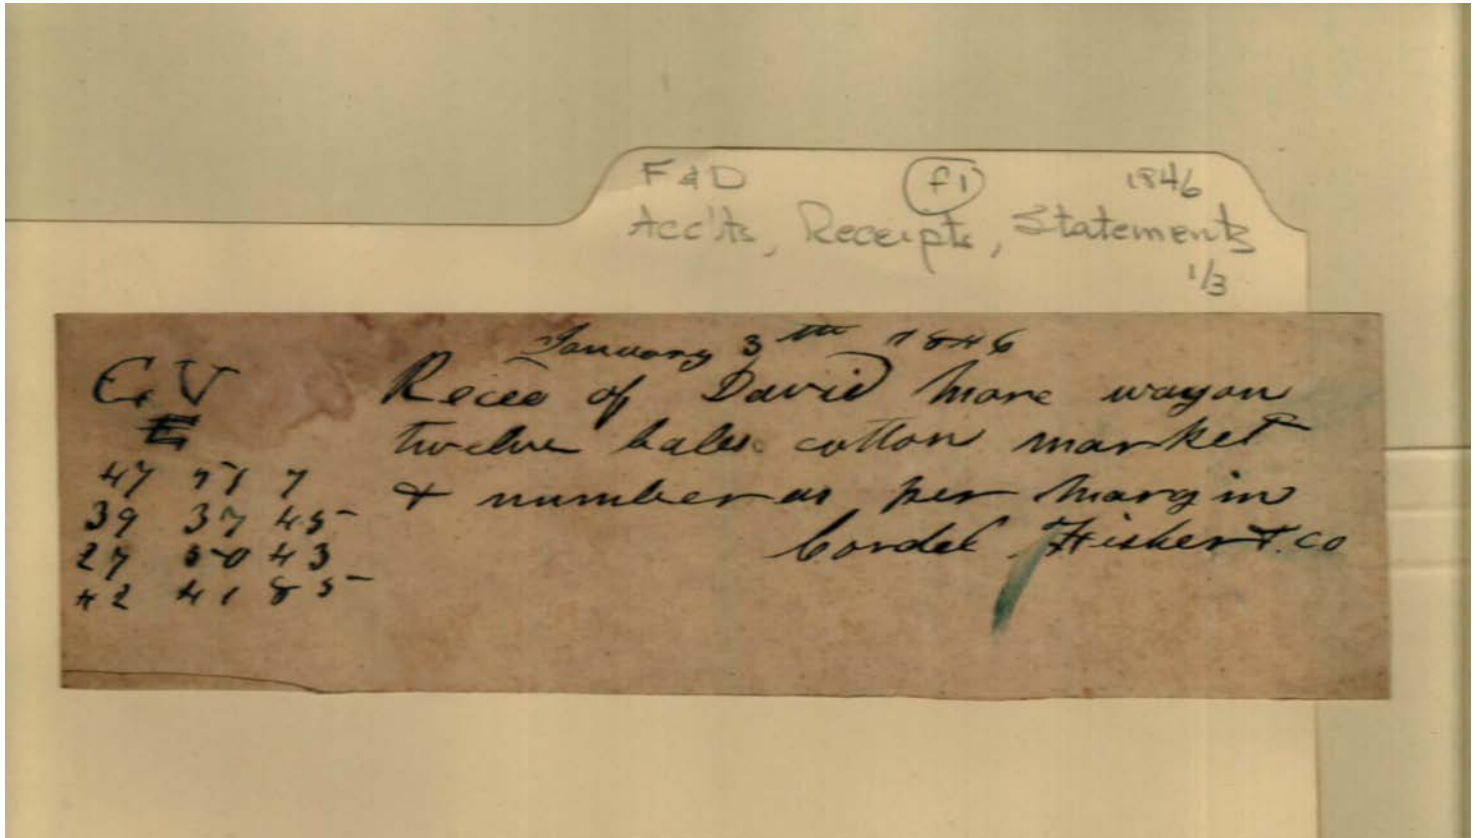 F & D (f1) 1846
Acc'ts, Receipts, Statements
1/3
January 3th 1846
C, V
E
Recee of David More wagon
twelve bales cotton market
& number as per margin
Cordel Fisher & co
47 77 7
39 37 45
27 50 43
42 41 85